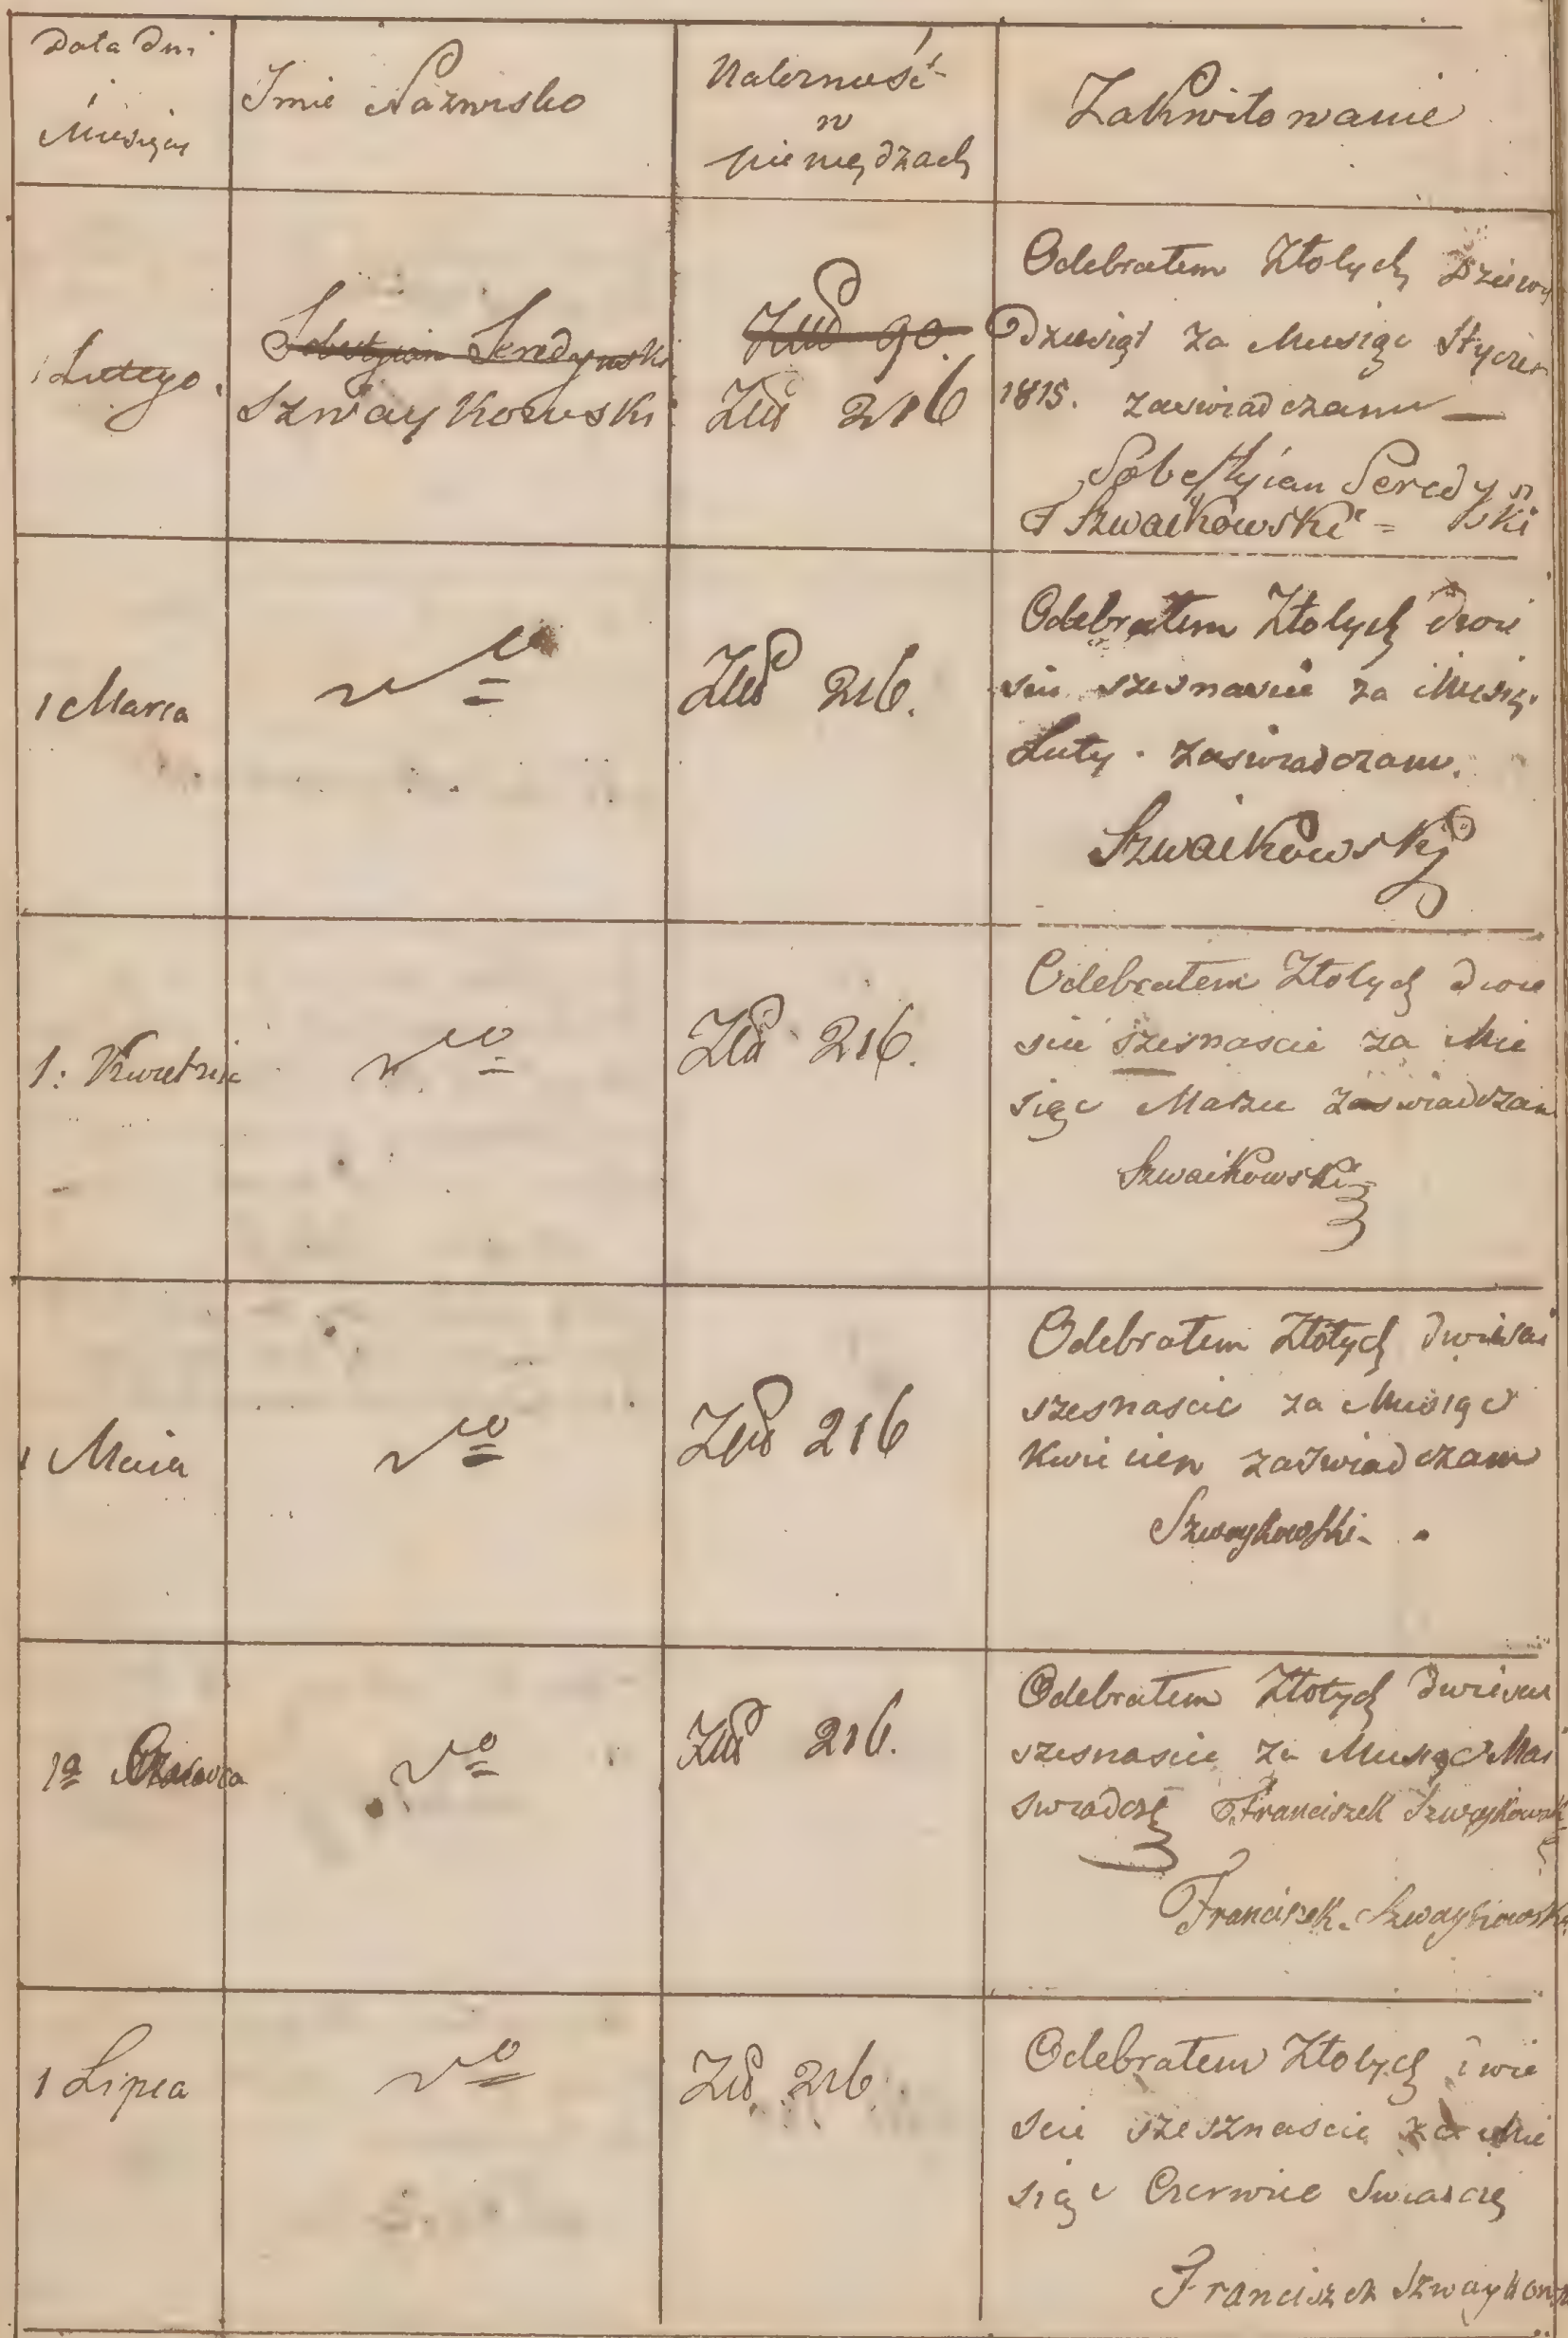 Data dni
i
Miesięcy
Imie Nazwisko
Należność
w
pieniędzach
Zakwitowanie
1 Lutego.
Sobestyian Seredynski
Szwaykowski
Złł 90.
Złł 216
Odebrałem Złotych Dziewię
Dziesiąt za Miesiąc Styczeń
1815. zaswiadczam
Sobestyian Seredyn
ski
F Szwaikowski =
1 Marca
Złł 216.
Odebrałem Złotych dwie
scie szesnascie za Miesią.
Luty. zaswiadczam.
Szwaikowski
1: Kwietnia
Złł 216.
Odebrałem Złotych dwie
scie szesnascie za Mie
siąc Marzec zaswiadczam
Szwaikowski
1 Maia
Złł 216
Odebrałem Złotych dwiescie
szesnascie za Miesiąc
Kwiecien zaswiadczam
Szwaykowski
1a Czerwca
Złł 216.
Odebrałem Złotych dwiescie
szesnascie za Miesiąc Mai
swiadczę Franciszek Szwaykowski
Franciszek Szwaykowski
1 Lipca
Złł 216.
Odebrałem Złotych dwie
scie szesznascie za Mie
siąc Czerwiec Swiadczę
Franciszek Szwaykows